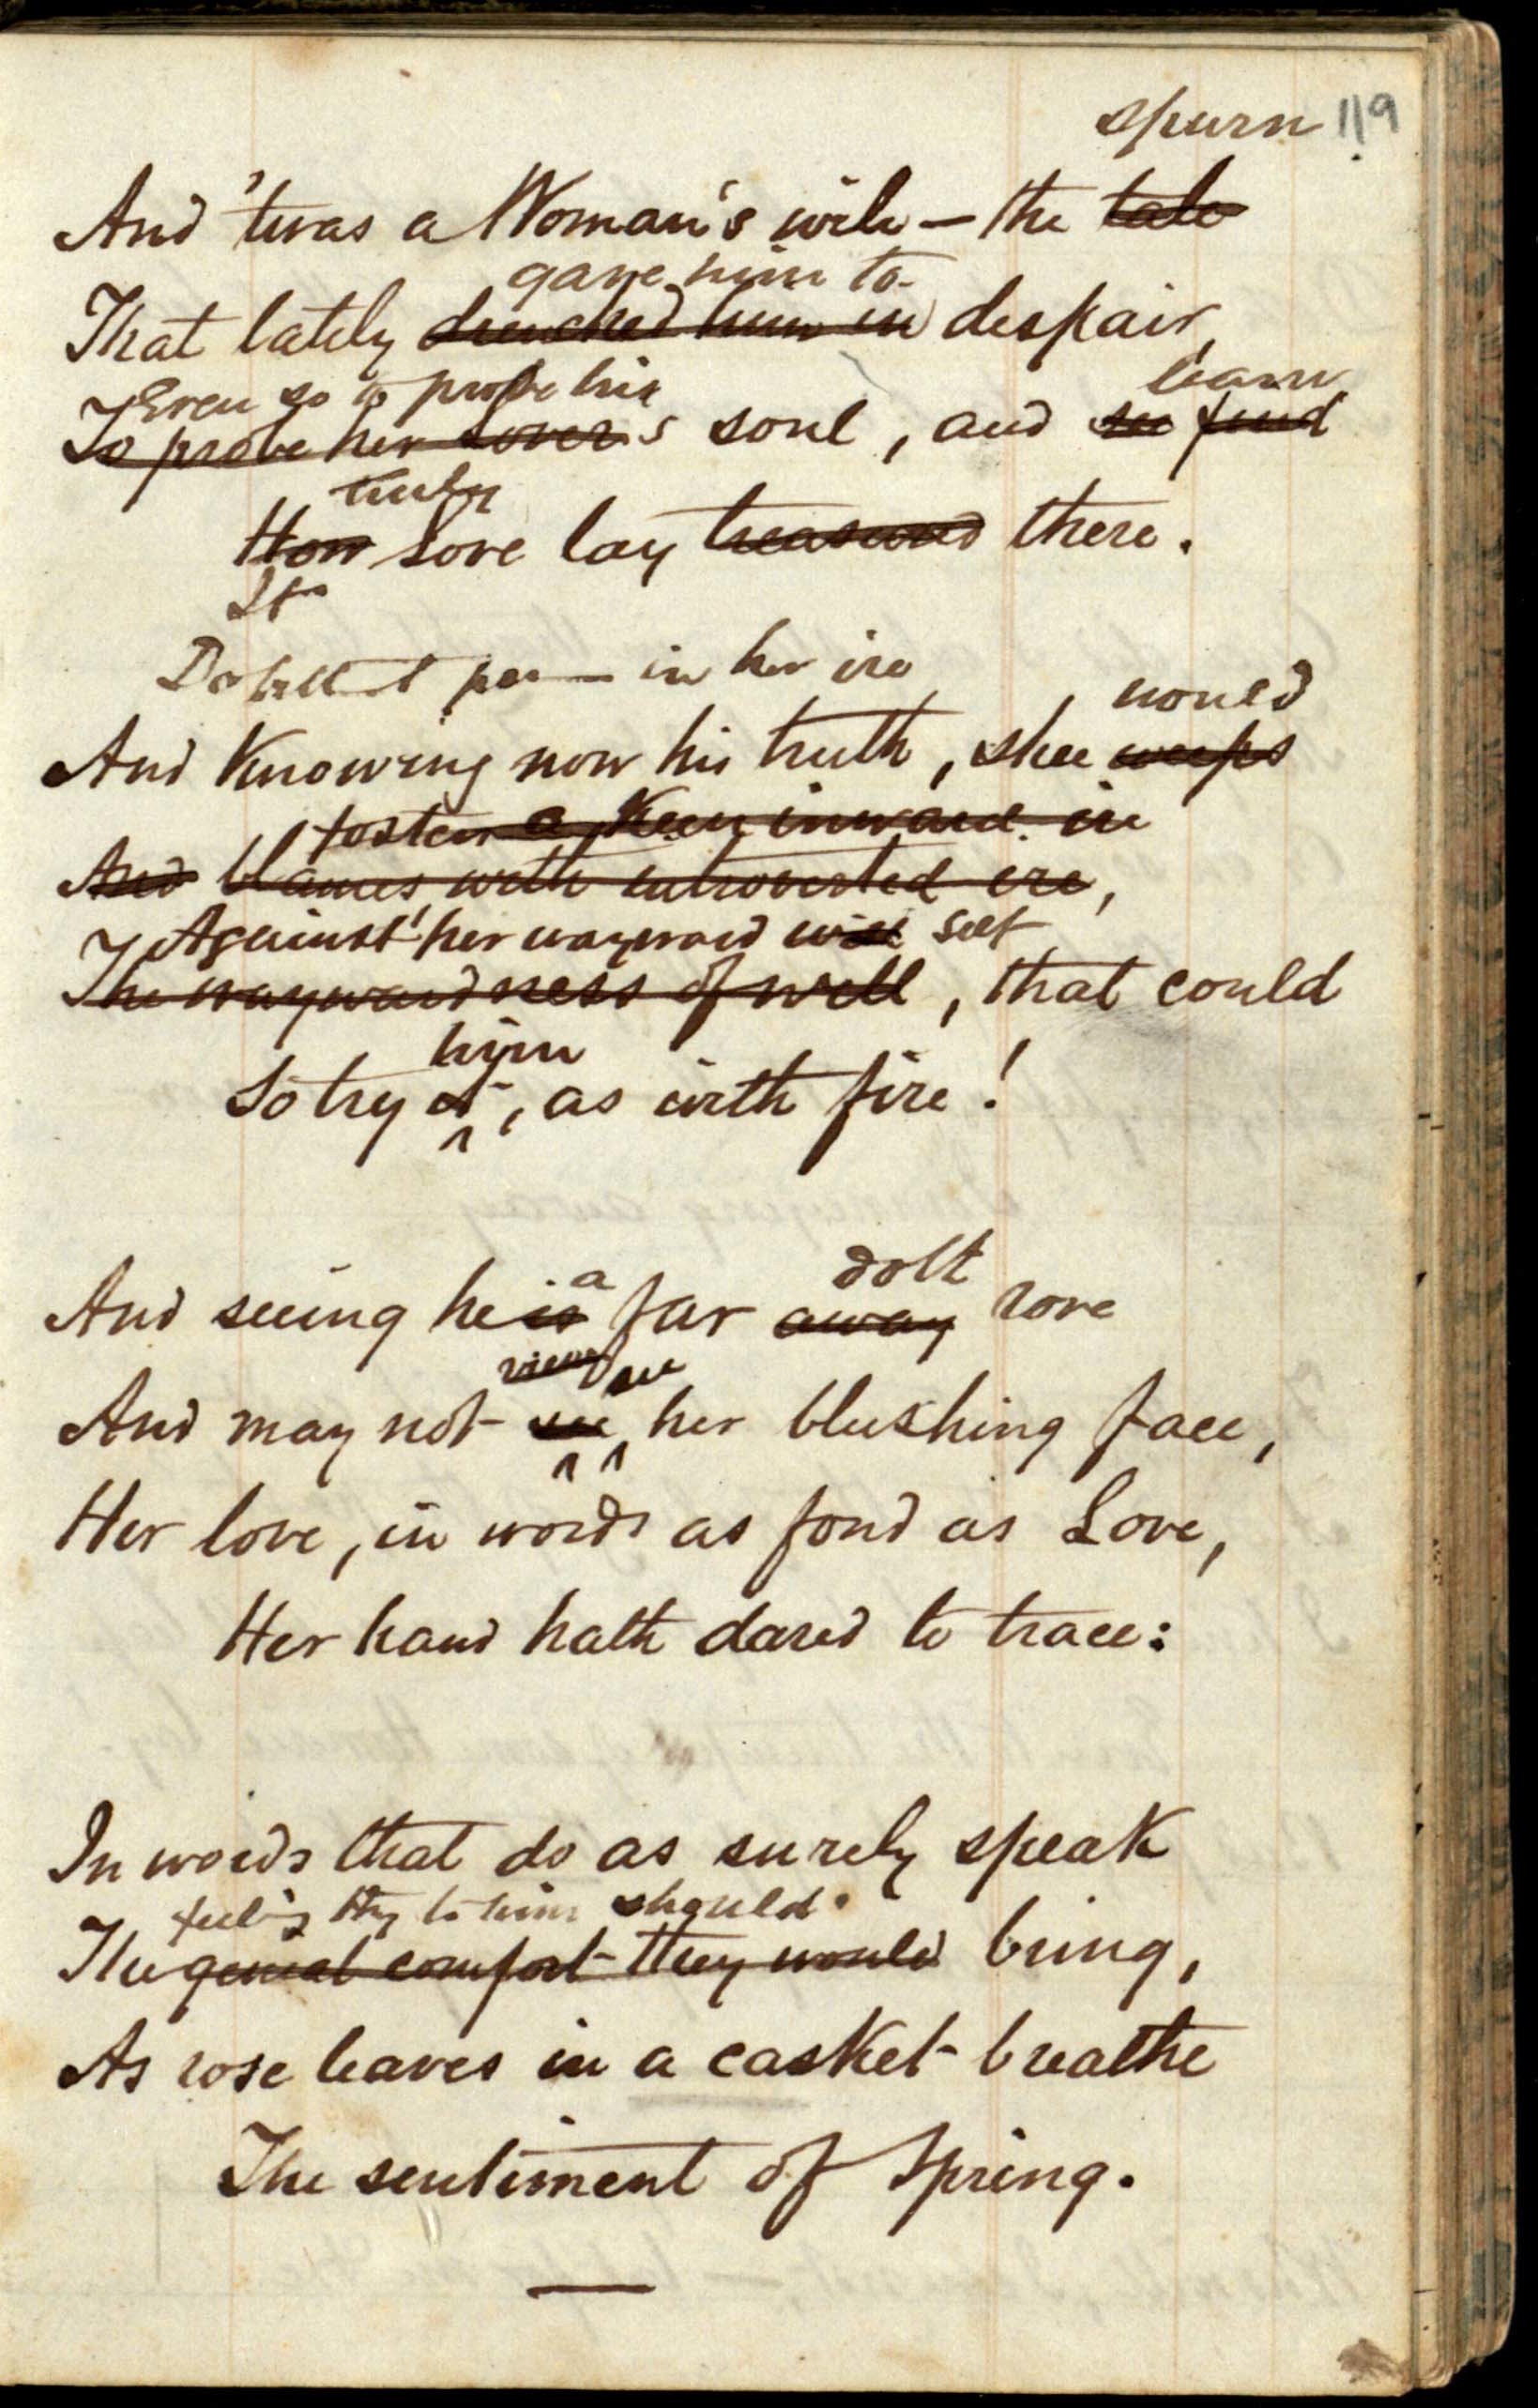 spurn 119
And 'twas a Woman's wile — the tale
gave him to
That lately drenched him in despair,
Even so to probe his learn
To probe her lover's soul, and see find
truly
How Love lay treasured there.
If
in her ire
would
And Knowing now his truth, shee weeps
foster a Keen inward in
And blames with introverted ire,
Against her wayward will self
The waywardness of will, that could
him
So try it, as with fire!
a dolt
And seeing he is far away rove
view see
And may not see her blushing face,
Her love, in words as fond as Love,
Her hand hath dared to trace:
In words that do as surely speak
feeling they to him should
The genial comfort they would bring,
As rose leaves in a casket breathe
The sentiment of Spring.